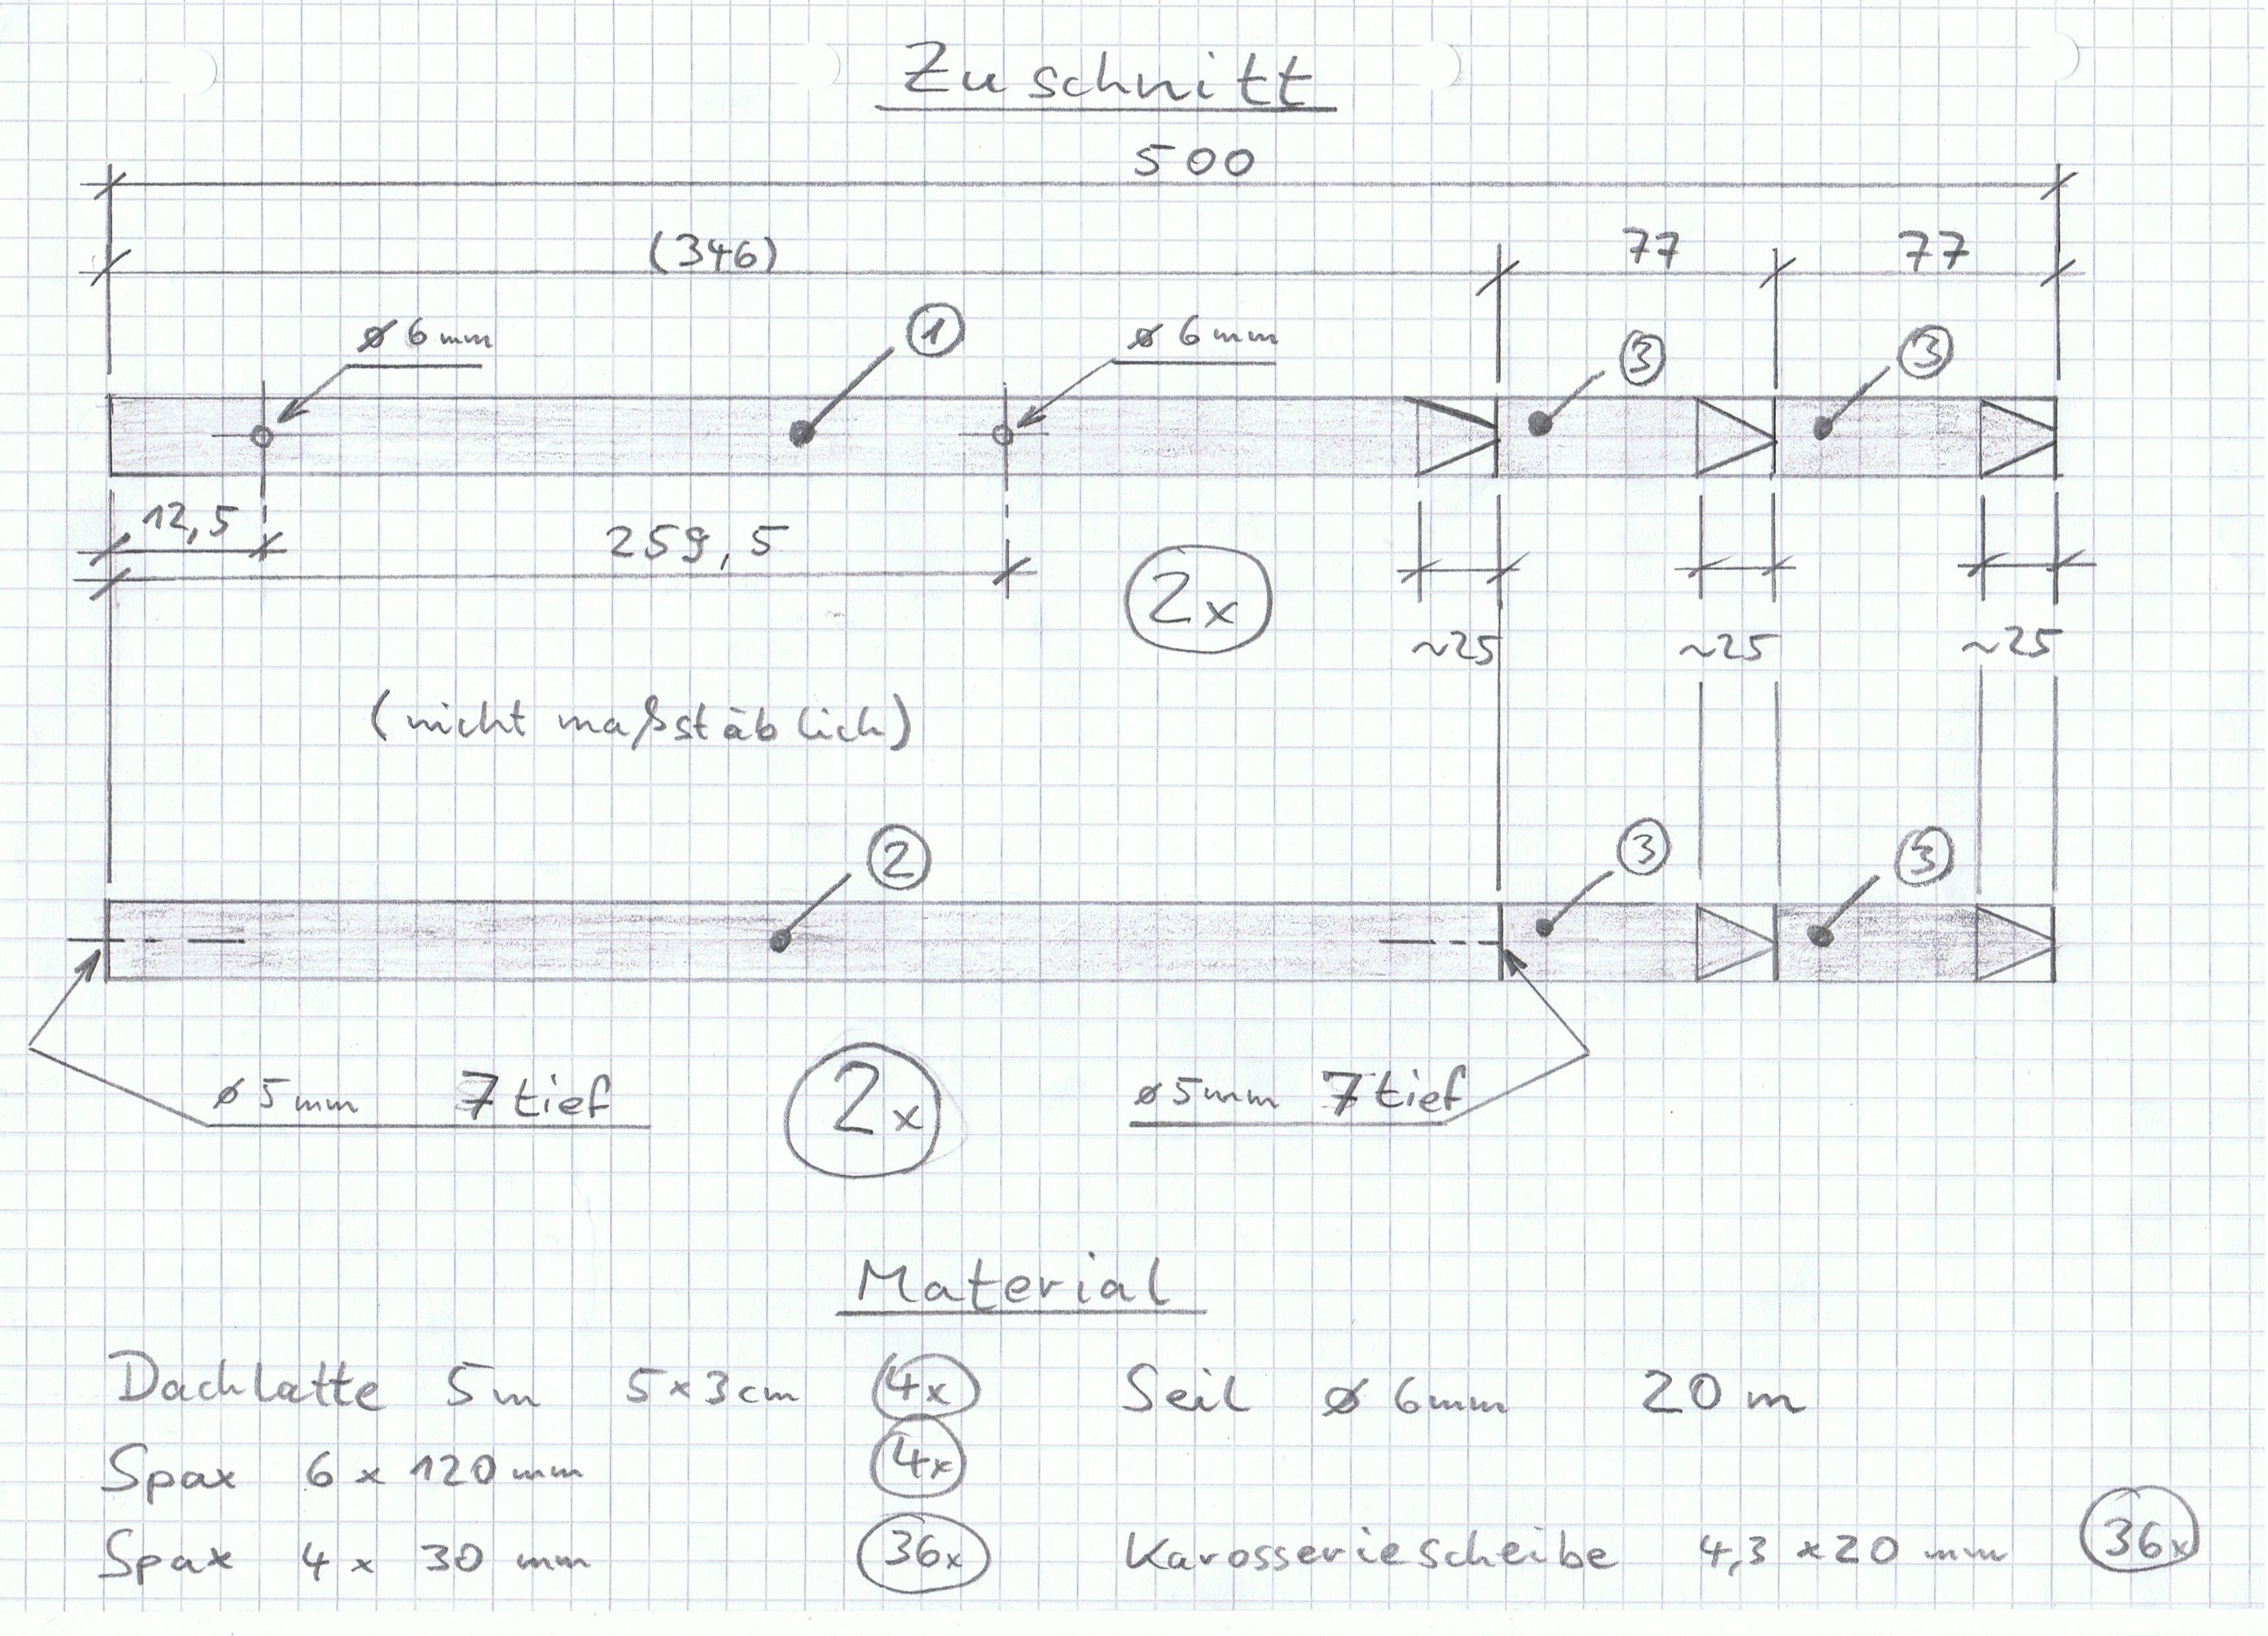 Zuschnitt
500
(346) 77 77
ø 6 mm 1 ø 6 mm 3 3
12,5 259,5 2x
~25 ~25 ~25
(nicht maßstäblich)
2 3 3
ø 5 mm 7 tief 2x ø 5 mm 7 tief
Material
Dachlatte 5m 5 x 3 cm 4x Seil ø 6 mm 20 m
Spax 6 x 120 mm 4x
Spax 4 x 30 mm 36x Karosseriescheibe 4,3 x 20 mm 36x